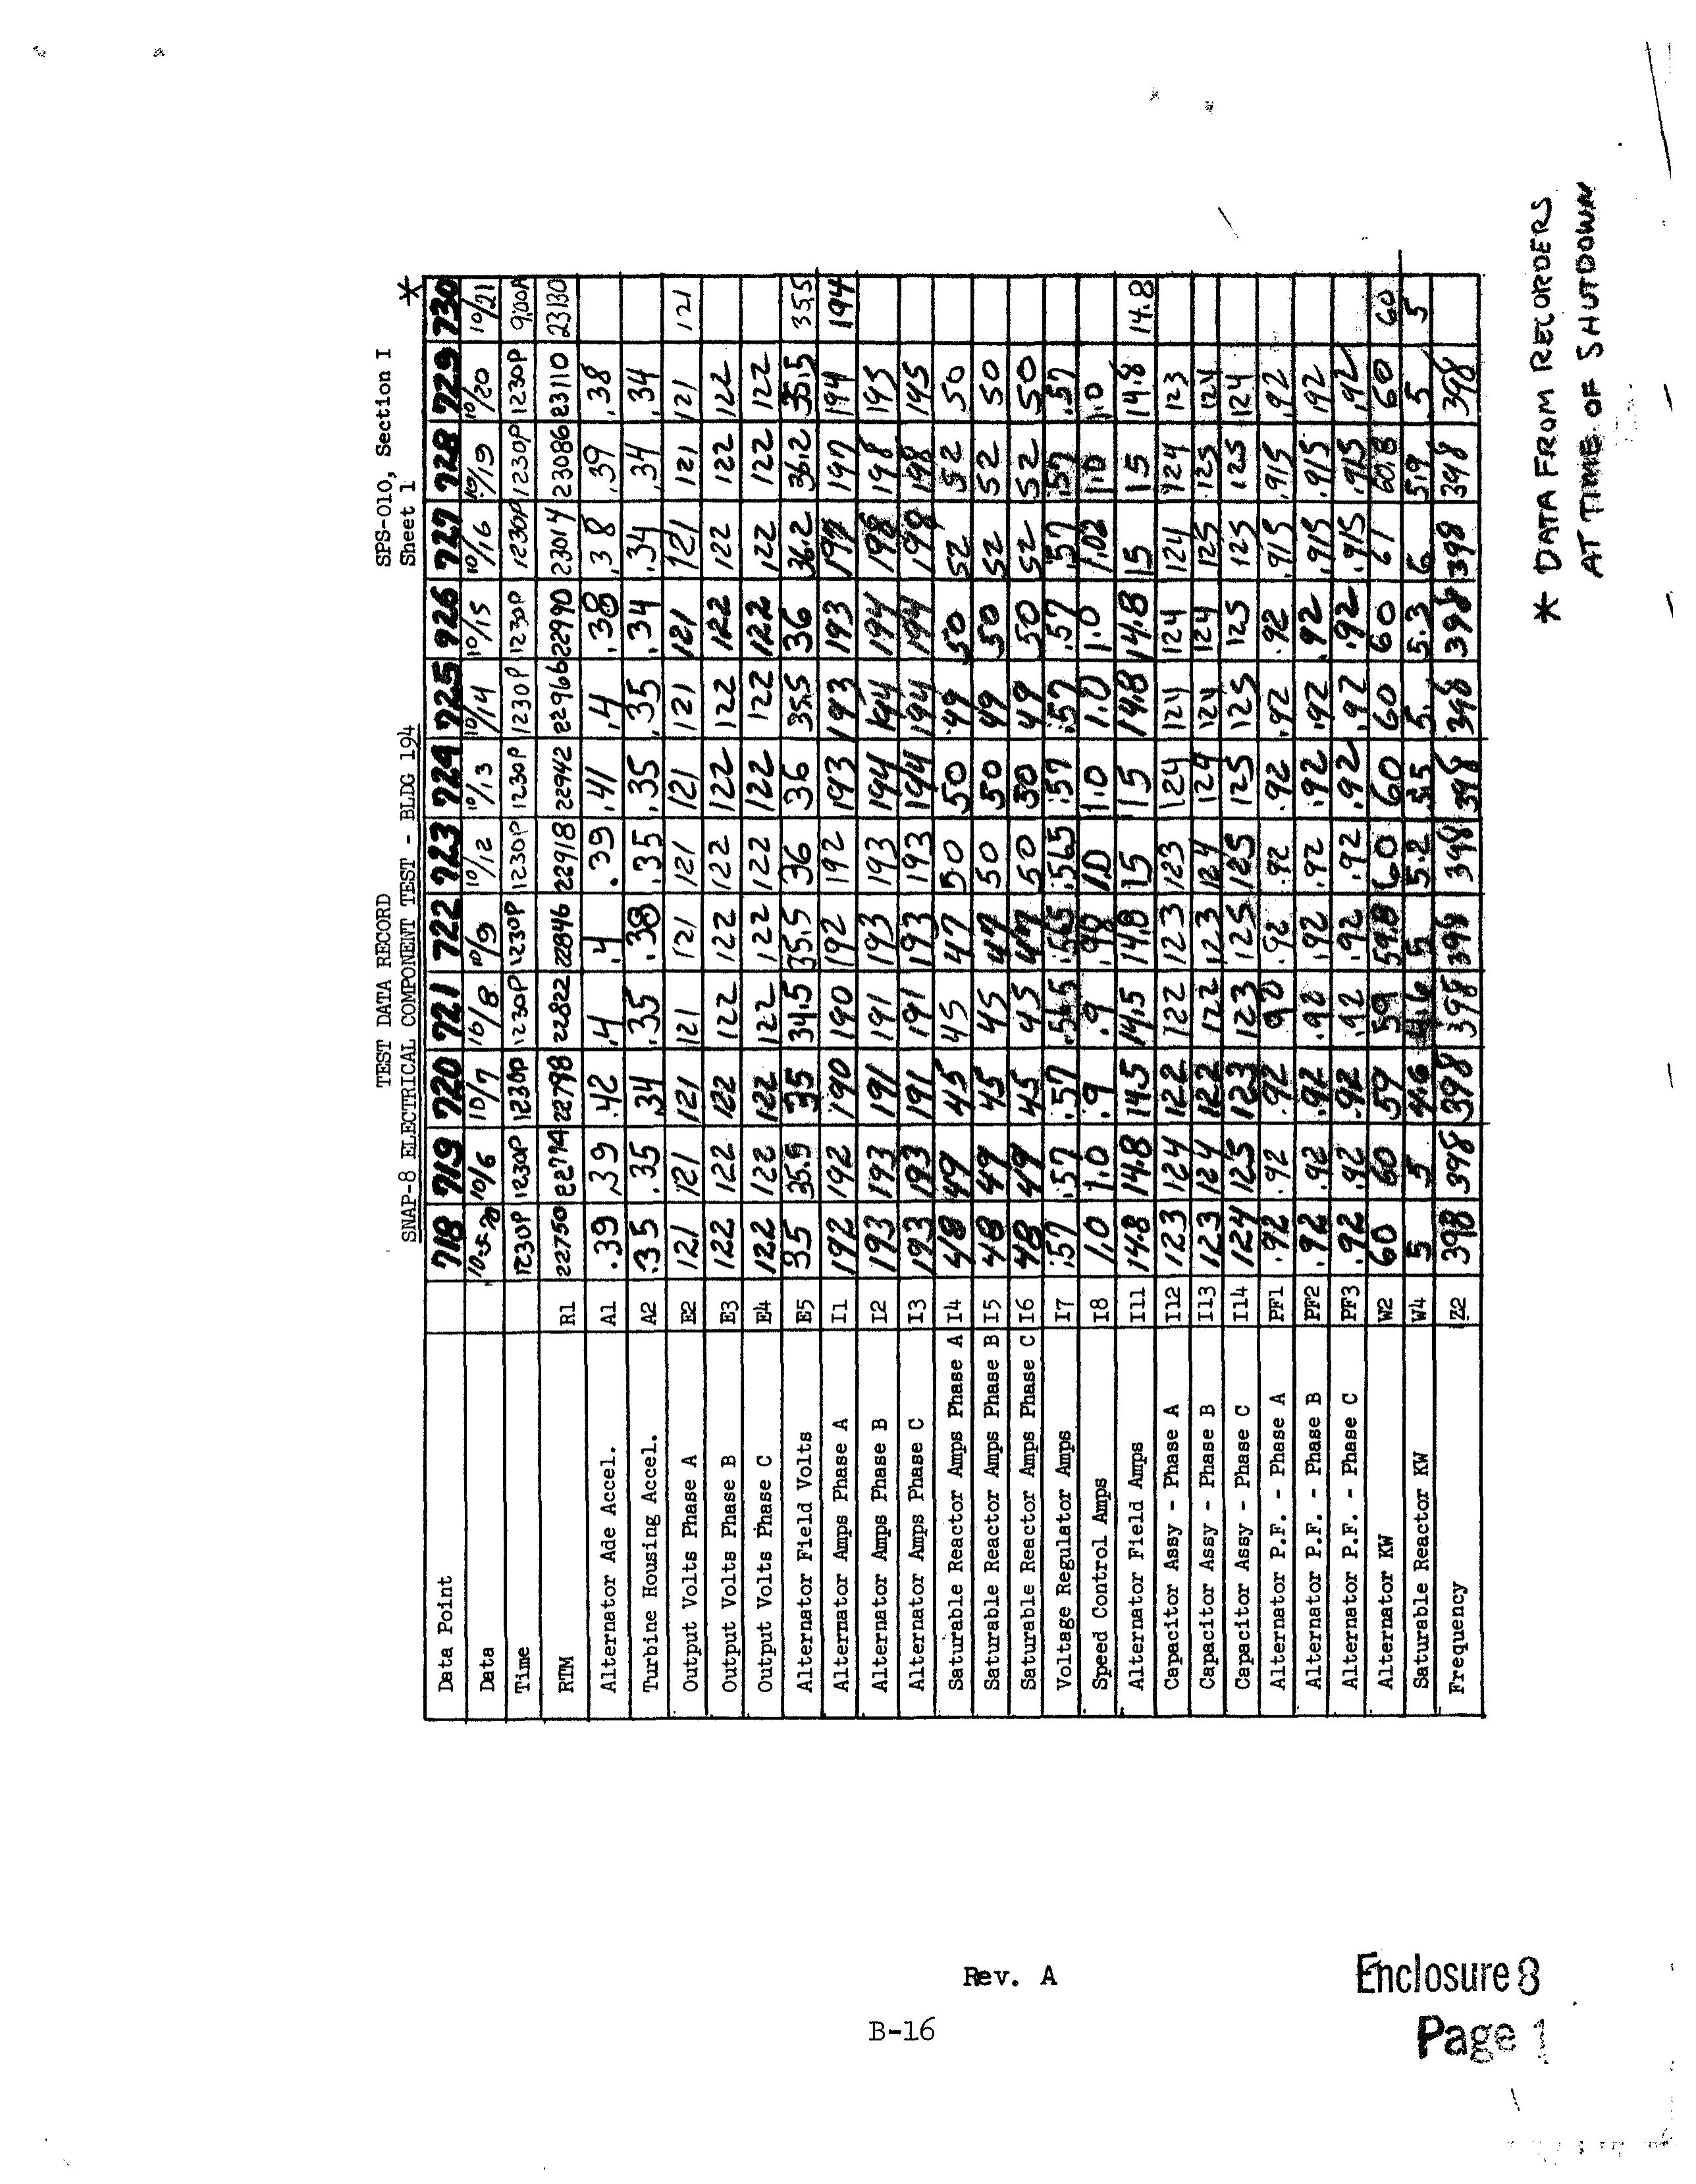 SPS-010, Section I
Sheet 1
TEST DATA RECORD
SNAP-8 ELECTRICAL COMPONENT TEST - BLDG 194
*
Data Point 718 719 720 721 722 723 724 725 926 727 728 729 730
Data 10-5-70 10/6 10/7 10/8 10/9 10/12 10/13 10/14 10/15 10/16 10/19 10/20 10/21
Time 1230P 1230P 1230P 1230P 1230P 1230P 1230P 1230P 1230P 1230P 1230P 1230P 9,00A
RTM R1 22750 22774 22798 22822 22846 22918 22942 22966 22990 23014 23086 23110 23130
Alternator Ade Accel. A1 .39 .39 .42 .4 .4 .39 .41 .4 .38 .38 .39 .38
Turbine Housing Accel. A2 .35 .35 .34 .35 .38 .35 .35 .35 .34 .34 .34 .34
Output Volts Phase A E2 121 121 121 121 121 121 121 121 121 121 121 121 121
Output Volts Phase B E3 122 122 122 122 122 122 122 122 122 122 122 122
Output Volts Phase C E4 122 122 122 122 122 122 122 122 122 122 122 122
Alternator Field Volts E5 35 35.5 35 34.5 35.5 36 36 35.5 36 36.2 36.2 35.5 35.5
Alternator Amps Phase A I1 192 192 190 190 192 192 193 193 193 197 197 194 194
Alternator Amps Phase B I2 193 193 191 191 193 193 194 194 194 198 198 195
Alternator Amps Phase C I3 193 193 191 191 193 193 194 194 194 198 198 195
Saturable Reactor Amps Phase A I4 48 49 45 45 47 50 50 49 50 52 52 50
Saturable Reactor Amps Phase B I5 48 49 45 45 47 50 50 49 50 52 52 50
Saturable Reactor Amps Phase C I6 48 49 45 45 47 50 50 49 50 52 52 50
Voltage Regulator Amps I7 .57 .57 .57 .565 .565 .565 .57 .57 .57 .57 .57 .57
Speed Control Amps I8 1.0 1.0 .9 .9 .98 1.0 1.0 1.0 1.0 1.02 1.0 1.0
Alternator Field Amps I11 14.8 14.8 14.5 14.5 14.8 15 15 14.8 14.8 15 15 14.8 14.8
Capacitor Assy - Phase A I12 123 124 122 122 123 123 124 124 124 124 124 123
Capacitor Assy - Phase B I13 123 124 122 122 123 124 124 124 124 125 125 124
Capacitor Assy - Phase C I14 124 125 123 123 125 125 125 125 125 125 125 124
Alternator P.F. - Phase A PF1 .92 .92 .92 .92 .92 .92 .92 .92 .915 .915 .92
Alternator P.F. - Phase B PF2 .92 .92 .92 .92 .92 .92 .92 .92 .92 .915 .915 .92
Alternator P.F. - Phase C PF3 .92 .92 .92 .92 .92 .92 .92 .92 .92 .915 .915 .92
Alternator KW W2 60 60 59 59 59.8 60 60 60 60 61 60.8 60 60
Saturable Reactor KW W4 5 5 4.6 4.6 5 5.2 5.5 5. 5.3 6 5.9 5 5
Frequency Z2 398 398 398 398 398 398 398 398 398 398 398 398
* DATA FROM RECORDERS
AT TIME OF SHUTDOWN
Rev. A
B-16
Enclosure 8
Page 1